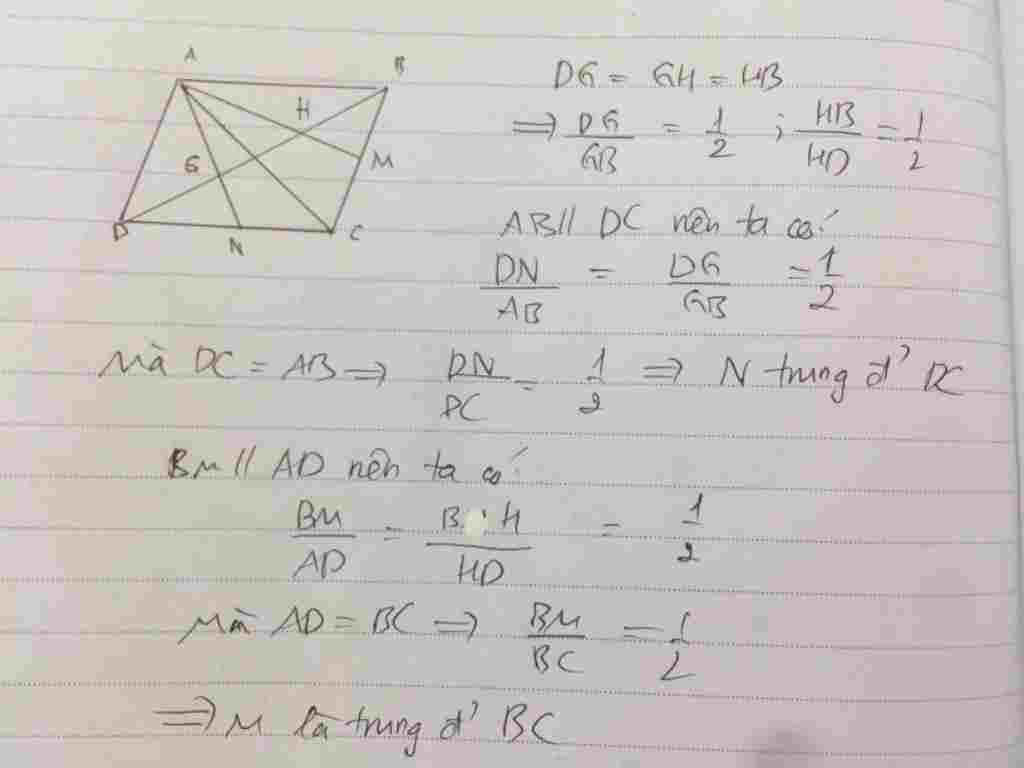 A
B
H
M
G
D
N
C
DG = GH = HB
=> DG/GB = 1/2 ; HB/HD = 1/2
AB // DC nên ta có
DN/AB = DG/GB = 1/2
Mà DC = AB => DN/DC = 1/2 => N trung đ' DC
BM // AD nên ta có
BM/AD = BH/HD = 1/2
Mà AD = BC => BM/BC = 1/2
=> M là trung đ' BC